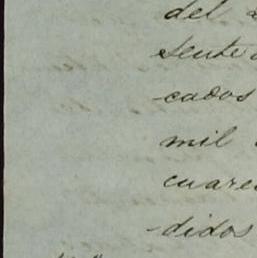 del
sente
cados
mil
cuare
didos